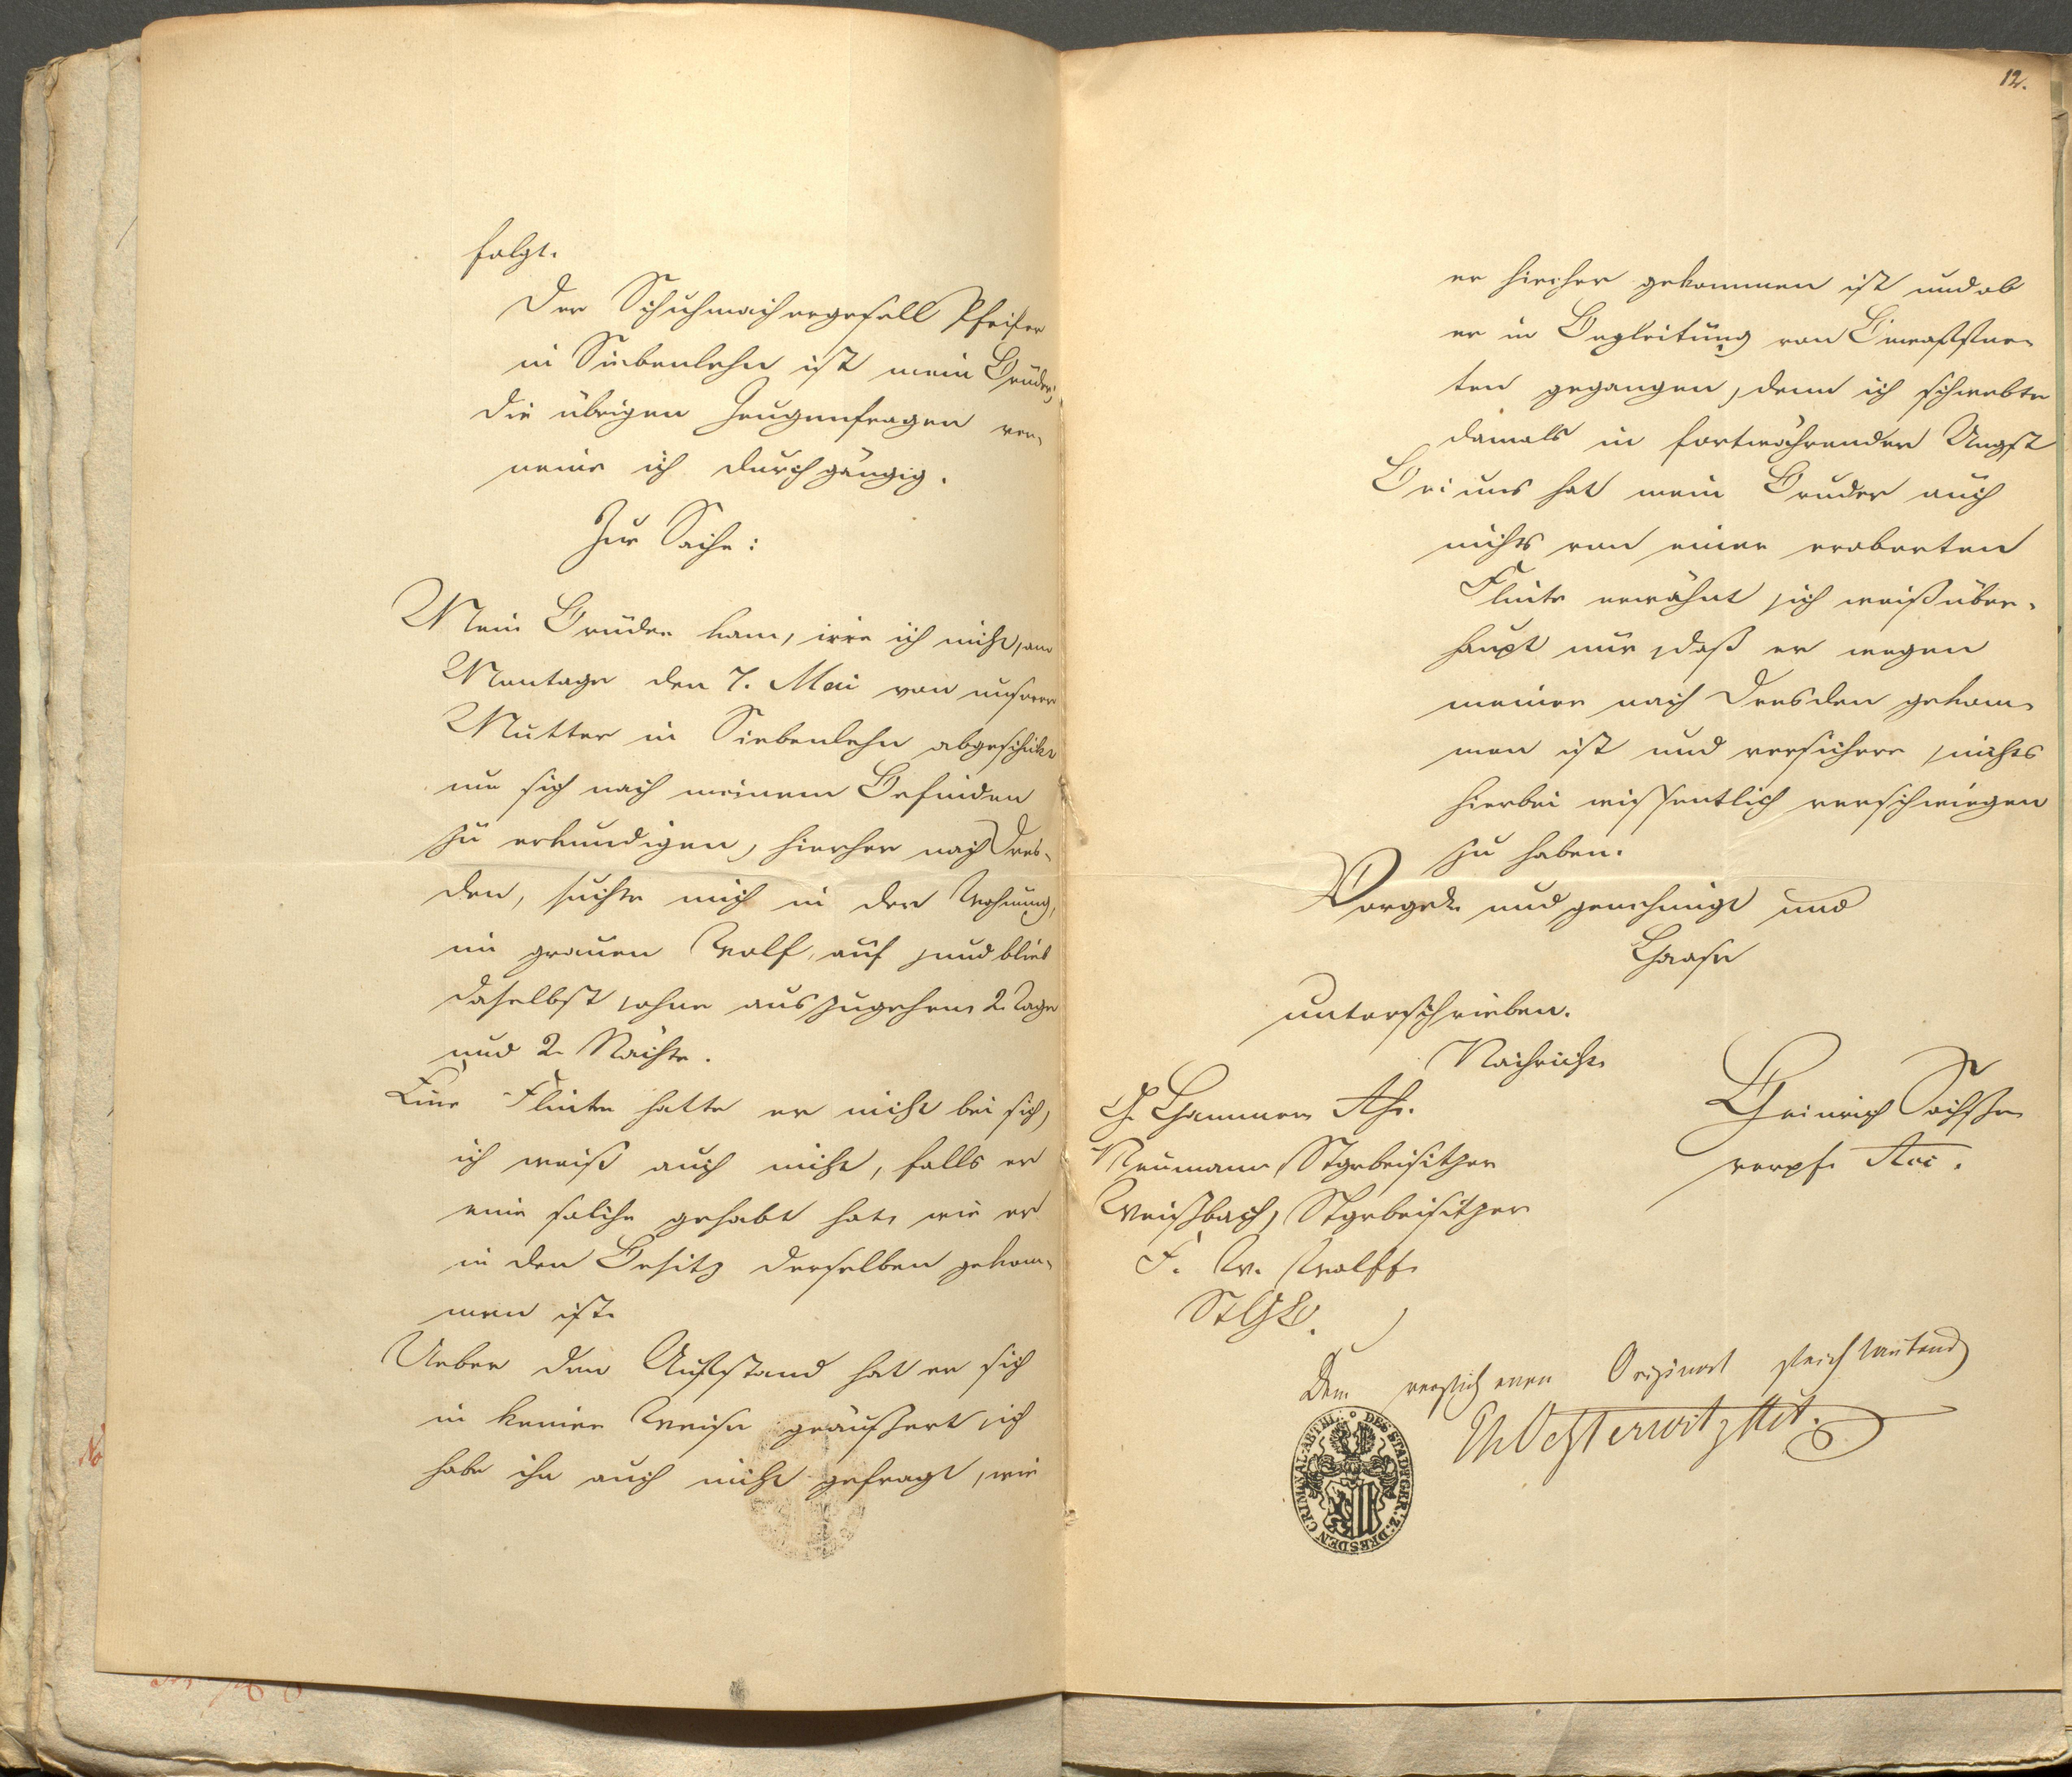 folgt.
Der Schuhmachergesell Pfeifer
in Siebenlehn ist mein Bruder,
die übrigen Zeugenfragen ver-
neine ich durchgängig.
Zur Sache:
Mein Bruder kam, irre ich nicht, am
Montage den 7. Mai von unserer
Mutter in Siebenlehn abgeschickt
um sich nach meinem Befinden
zu erkundigen, hierher nach Dres-
den, suchte mich in der Wohnung,
im grauen Wolf, auf, und blieb
daselbst, ohne auszugehen, 2 Tage
und 2 Nächte.
Eine Flinte hatte er nicht bei sich,
ich weiß auch nicht, falls er
eine solche gehabt hat, wie er
in den Besitz derselben gekom-
men ist.
Ueber den Aufstand hat er sich
in keiner Weise geäußert, ich
habe ihn auch nicht gefragt, wie
12.
er hierher gekommen ist und ob
er in Begleitung von Bewaffne-
ten gegangen, denn ich schwebte
damals in fortwährender Angst
Bei uns hat mein Bruder auch
nichts von einer eroberten
Flinte erwähnt, ich weiß über-
haupt nur, daß er wegen
meiner nach Dresden gekom-
men ist und versichere, nichts
hierbei wissentlich verschwiegen
zu haben.
Vorgel. und genehmigt und
Haase
unterschrieben.
Nachrichtl.
Heinrich Sachße
verpf. Act.
Hammer
Neumann, Stgrbeisitzer
Weißbach, Stgrbeisitzer
F. W. Wolff
Dem verglichenen Original gleichlautend
CRIMINAL-ABTHL: DES STADTGER: Z: DRESDEN